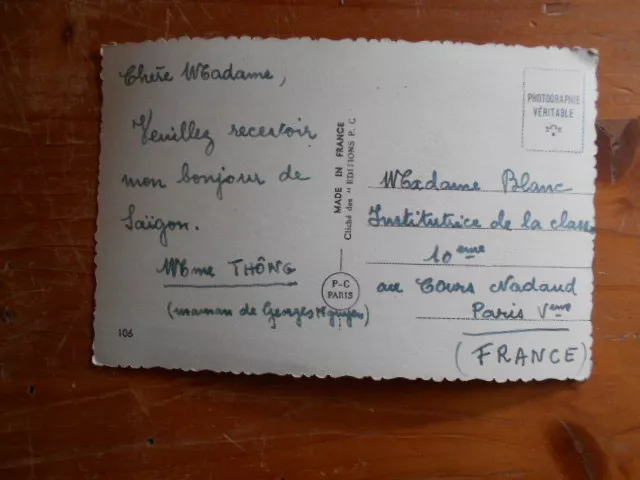 Chère Madame,
Veuillez recevoir
mon bonjour de
Saïgon.
Mme THÔNG
(maman de Georges Nguyen)
106
MADE IN FRANCE
Cliché des "EDITIONS P. C
P-C
PARIS
PHOTOGRAPHIE
VÉRITABLE
Madame Blanc
Institutrice de la classe
10eme
au Cours Nadaud
Paris Veme
(FRANCE)